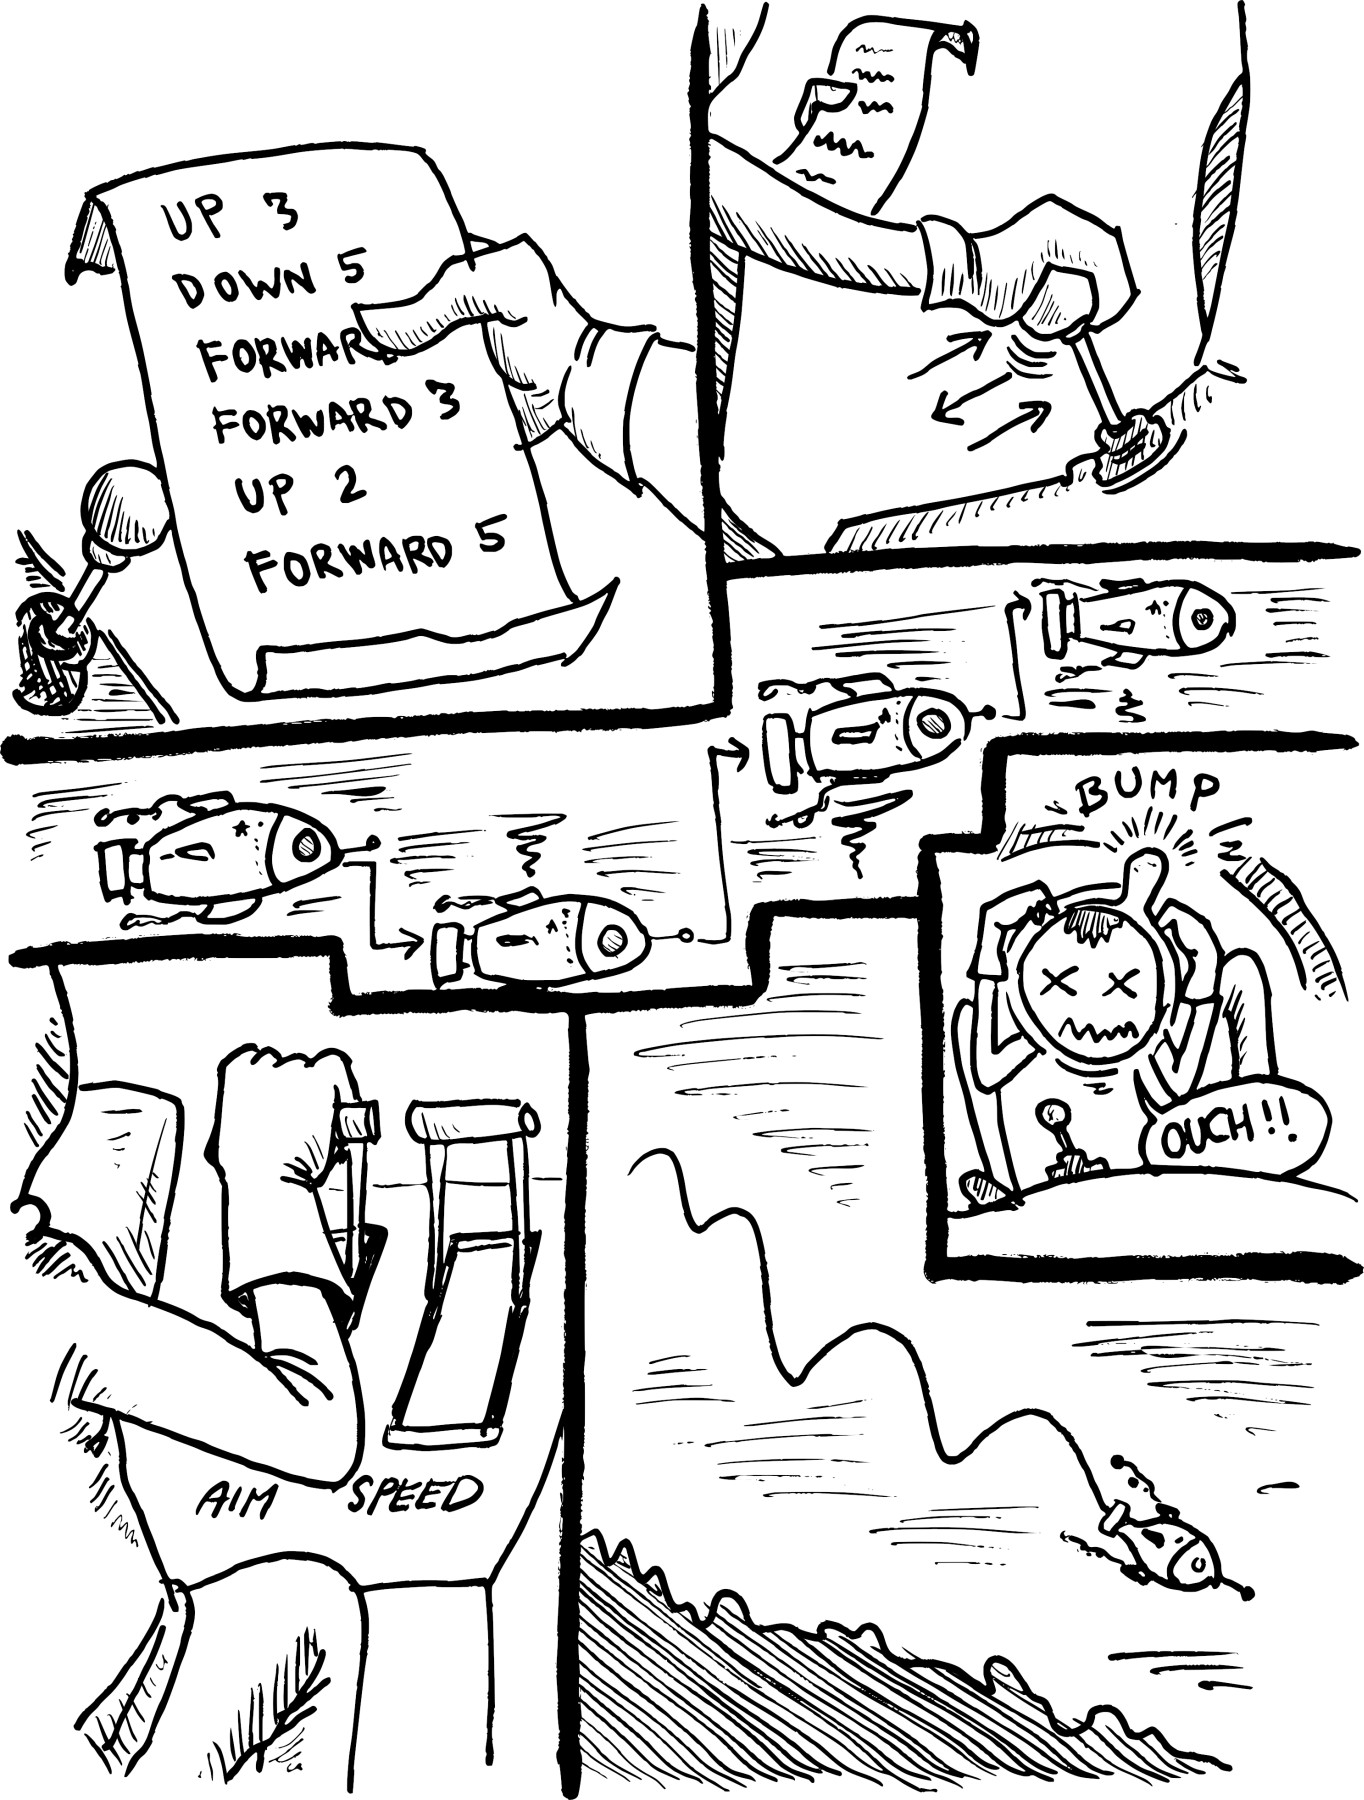 UP 3
DOWN 5
FORWARD
FORWARD 3
UP 2
FORWARD 5
BUMP
OUCH!!
AIM SPEED